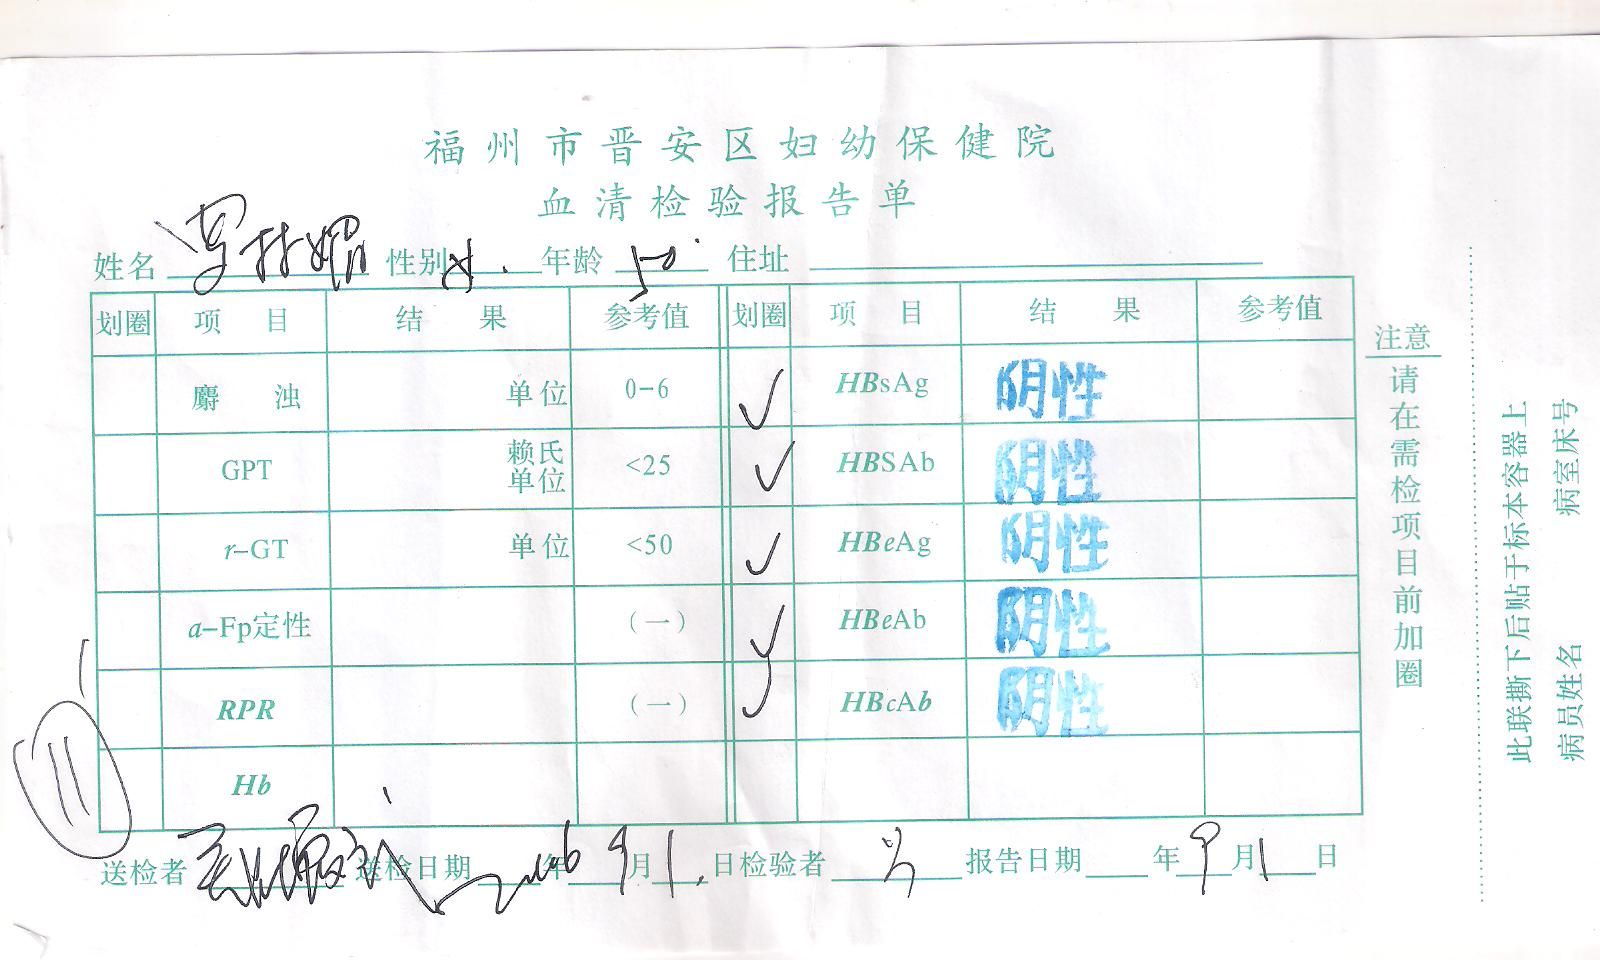 福州市晋安区妇幼保健院
血清检验报告单
姓名 性别 女. 年龄 50 住址
划圈 项目 结果 参考值 划圈 项目 结果 参考值
麝浊 单位 0-6 ✓ HBsAg 阴性
GPT 赖氏单位 <25 ✓ HBSAb 阴性
r-GT 单位 <50 ✓ HBeAg 阴性
a-Fp定性 (一) ✓ HBeAb 阴性
RPR (一) ✓ HBcAb 阴性
Hb
11
送检者 送检日期 2006年9月1日 检验者 报告日期 年9月1日
注意
请在需检项目前加圈
此联撕下后贴于标本容器上
病员姓名 病室床号